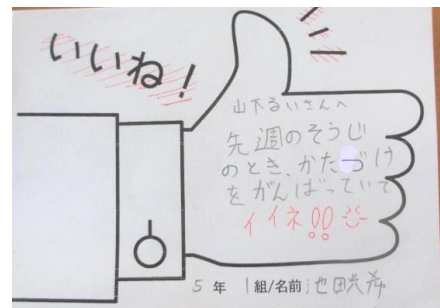 いいね!
山下るいさんへ
先週のそうじ
のとき、かたづけ
をがんばっていて
イイネ!!
5年 1組/名前;池田